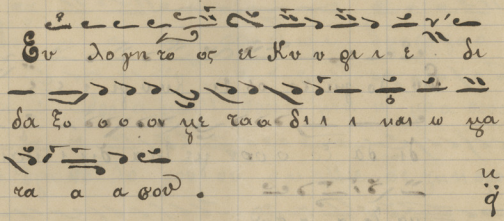 Ευ λο γη το ος ει Κυ υ ρι ι ε δι
δα ξο ο ο ον με τα α δι ι ι και ω μα
τα α α σου.